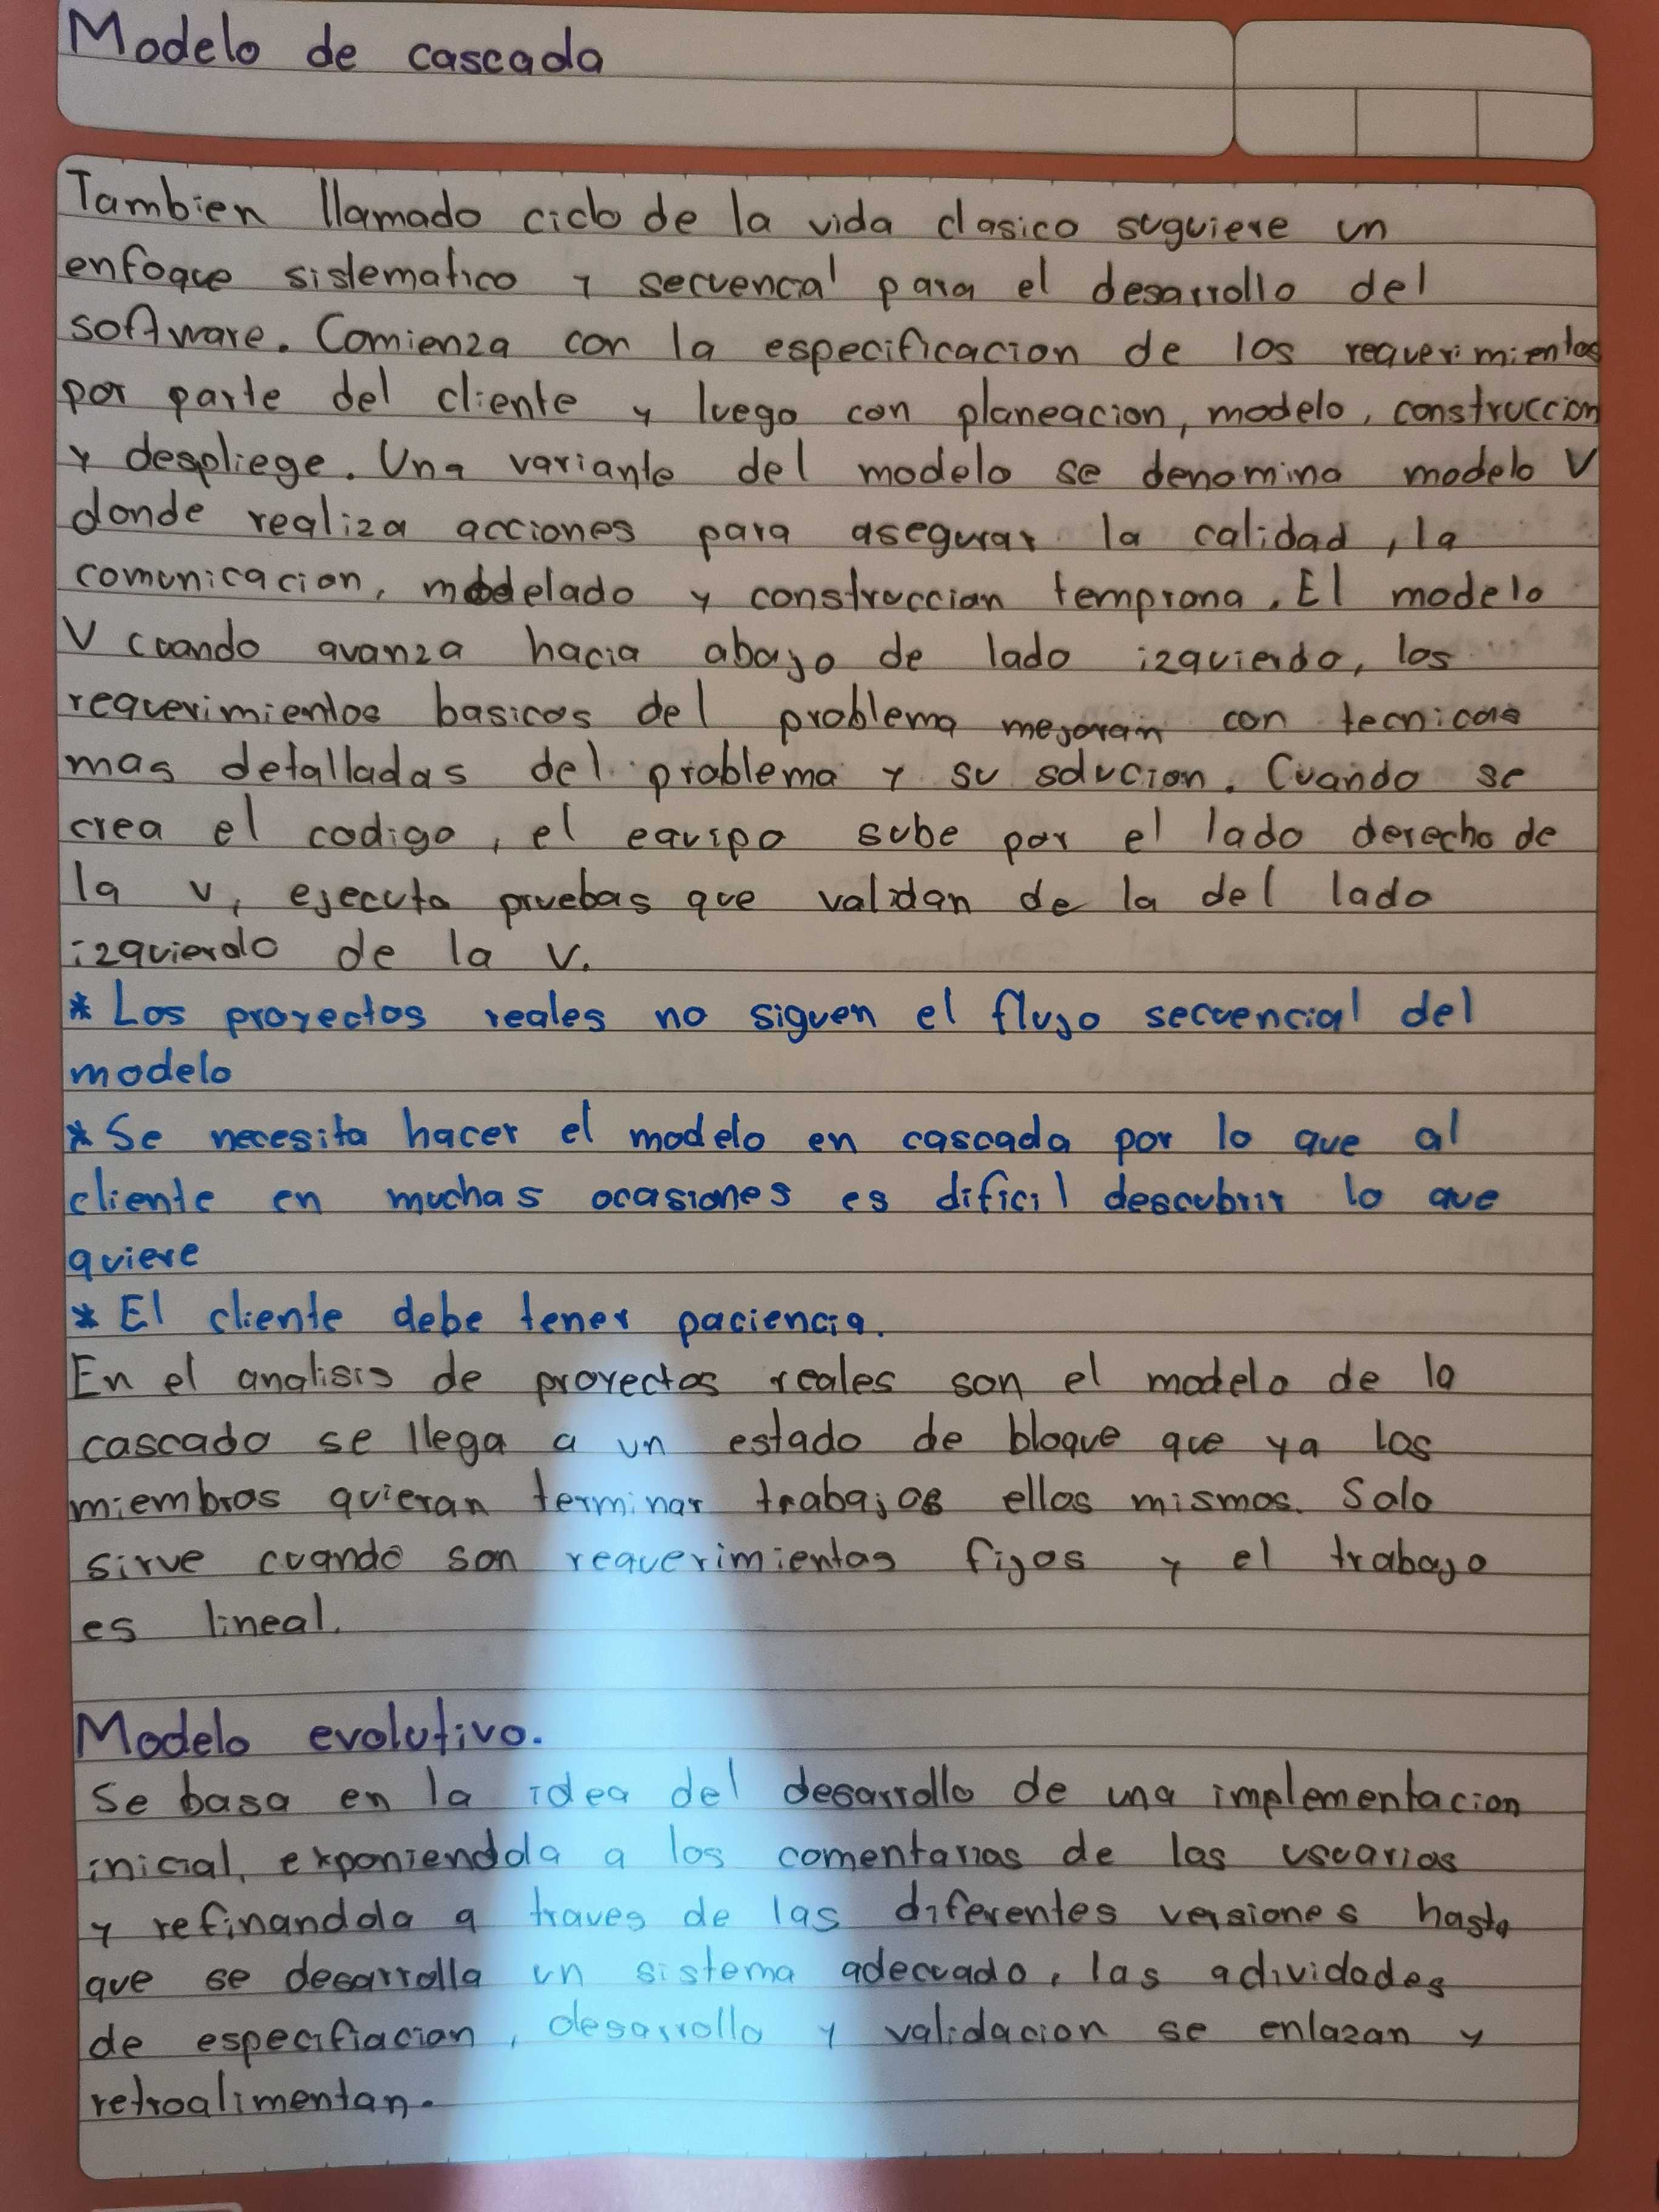 Modelo de cascada
Tambien llamado ciclo de la vida clasico suguiere un
enfoque sistematico y secuencal para el desarrollo del
software. Comienza con la especificacion de los requerimientos
por parte del cliente y luego con planeacion, modelo, construccion
y despliege. Una variante del modelo se denomina modelo V
donde realiza acciones para asegurar la calidad, la
comunicacion, modelado y construccian temprana. El modelo
V cuando avanza hacia abajo de lado izquierdo, los
requerimientos basicos del problema mejoran con tecnicas
mas detalladas del problema y su solucion. Cuando se
crea el codigo, el equipo sube por el lado derecho de
la v, ejecuta pruebas que validan de la del lado
izquierdo de la v.
* Los proyectos reales no siguen el flujo secuencial del
modelo
* Se necesita hacer el modelo en cascada por lo que al
cliente en muchas ocasiones es dificil descubrir lo que
quiere
* El cliente debe tener paciencia.
En el analisis de proyectos reales son el modelo de la
cascado se llega a un estado de bloque que ya los
miembros quieran terminar trabajos ellos mismos. Solo
sirve cuando son requerimientos fijos y el trabajo
es lineal.
Modelo evolutivo.
Se basa en la idea del desarrollo de una implementacion
inicial, exponiendola a los comentarios de los usuarios
y refinandola a traves de las diferentes versiones hasta
que se desarrolla un sistema adecuado, las actividades
de especifiacion, desarrollo y validacion se enlazan y
retroalimentan.